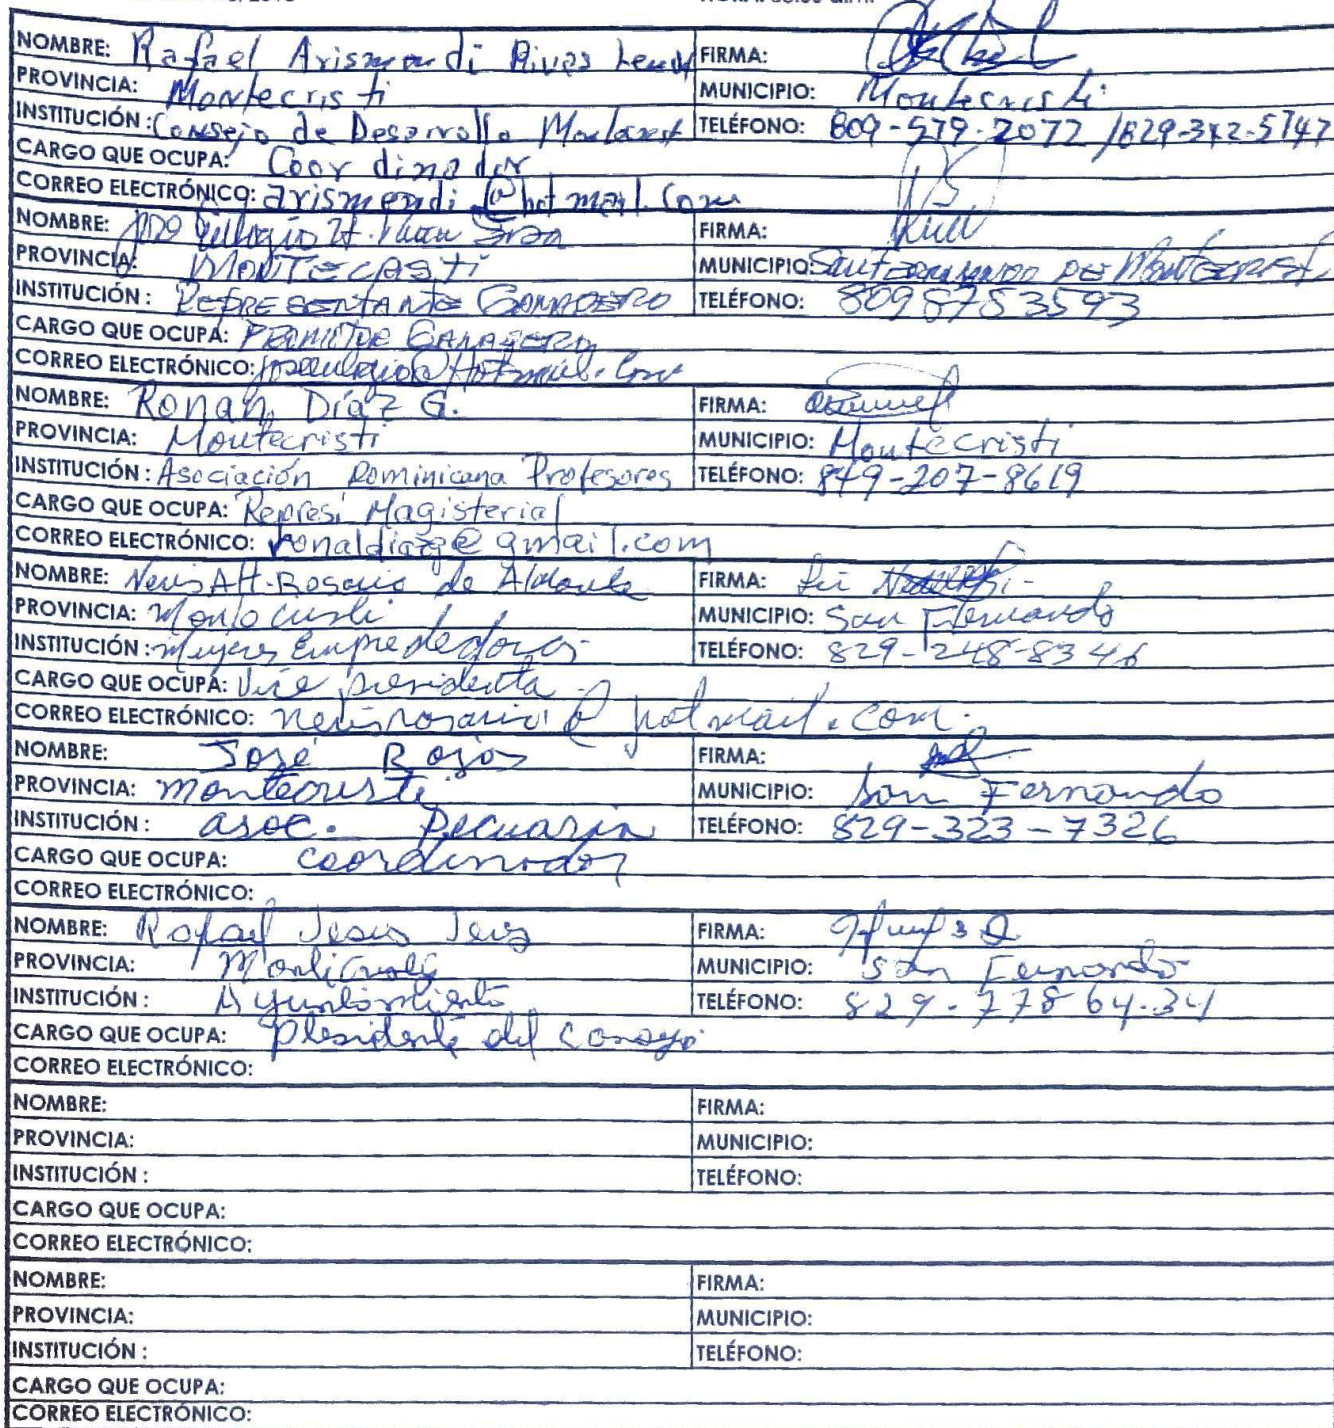 NOMBRE: Rafael Arismendi Rivas FIRMA:
PROVINCIA: Montecristi MUNICIPIO: Montecristi
INSTITUCIÓN : Consejo de Desarrollo TELÉFONO: 809-579-2072 /829-342-5747
CARGO QUE OCUPA: Coordinador
CORREO ELECTRÓNICO: arismendi @hotmail.com
NOMBRE: Eulogio FIRMA:
PROVINCIA: MUNICIPIO:
INSTITUCIÓN : REPRESENTANTE GANADERO TELÉFONO: 8098753593
CARGO QUE OCUPA:
CORREO ELECTRÓNICO: joseeulogio@Hotmail.com
NOMBRE: Ronan Díaz G. FIRMA:
PROVINCIA: Montecristi MUNICIPIO: Montecristi
INSTITUCIÓN : Asociación Dominicana Profesores TELÉFONO: 849-207-8619
CARGO QUE OCUPA: Magisterial
CORREO ELECTRÓNICO: ronaldiazg@gmail.com
NOMBRE: Nevis Alt. Rosario de FIRMA:
PROVINCIA: Montecristi MUNICIPIO: San Fernando
INSTITUCIÓN : Mujeres TELÉFONO: 829-248-8346
CARGO QUE OCUPA: Vice presidenta
CORREO ELECTRÓNICO: nevisrosario@hotmail.com.
NOMBRE: José Rojas FIRMA:
PROVINCIA: montecristi MUNICIPIO: San Fernando
INSTITUCIÓN : asoc. Pecuaria TELÉFONO: 829-323-7326
CARGO QUE OCUPA: coordinador
CORREO ELECTRÓNICO:
NOMBRE: Rafael Jesus FIRMA:
PROVINCIA: MUNICIPIO: San Fernando
INSTITUCIÓN : Ayuntamiento TELÉFONO: 829-778 64-34
CARGO QUE OCUPA: Presidente del
CORREO ELECTRÓNICO:
NOMBRE: FIRMA:
PROVINCIA: MUNICIPIO:
INSTITUCIÓN : TELÉFONO:
CARGO QUE OCUPA:
CORREO ELECTRÓNICO:
NOMBRE: FIRMA:
PROVINCIA: MUNICIPIO:
INSTITUCIÓN : TELÉFONO:
CARGO QUE OCUPA:
CORREO ELECTRÓNICO: